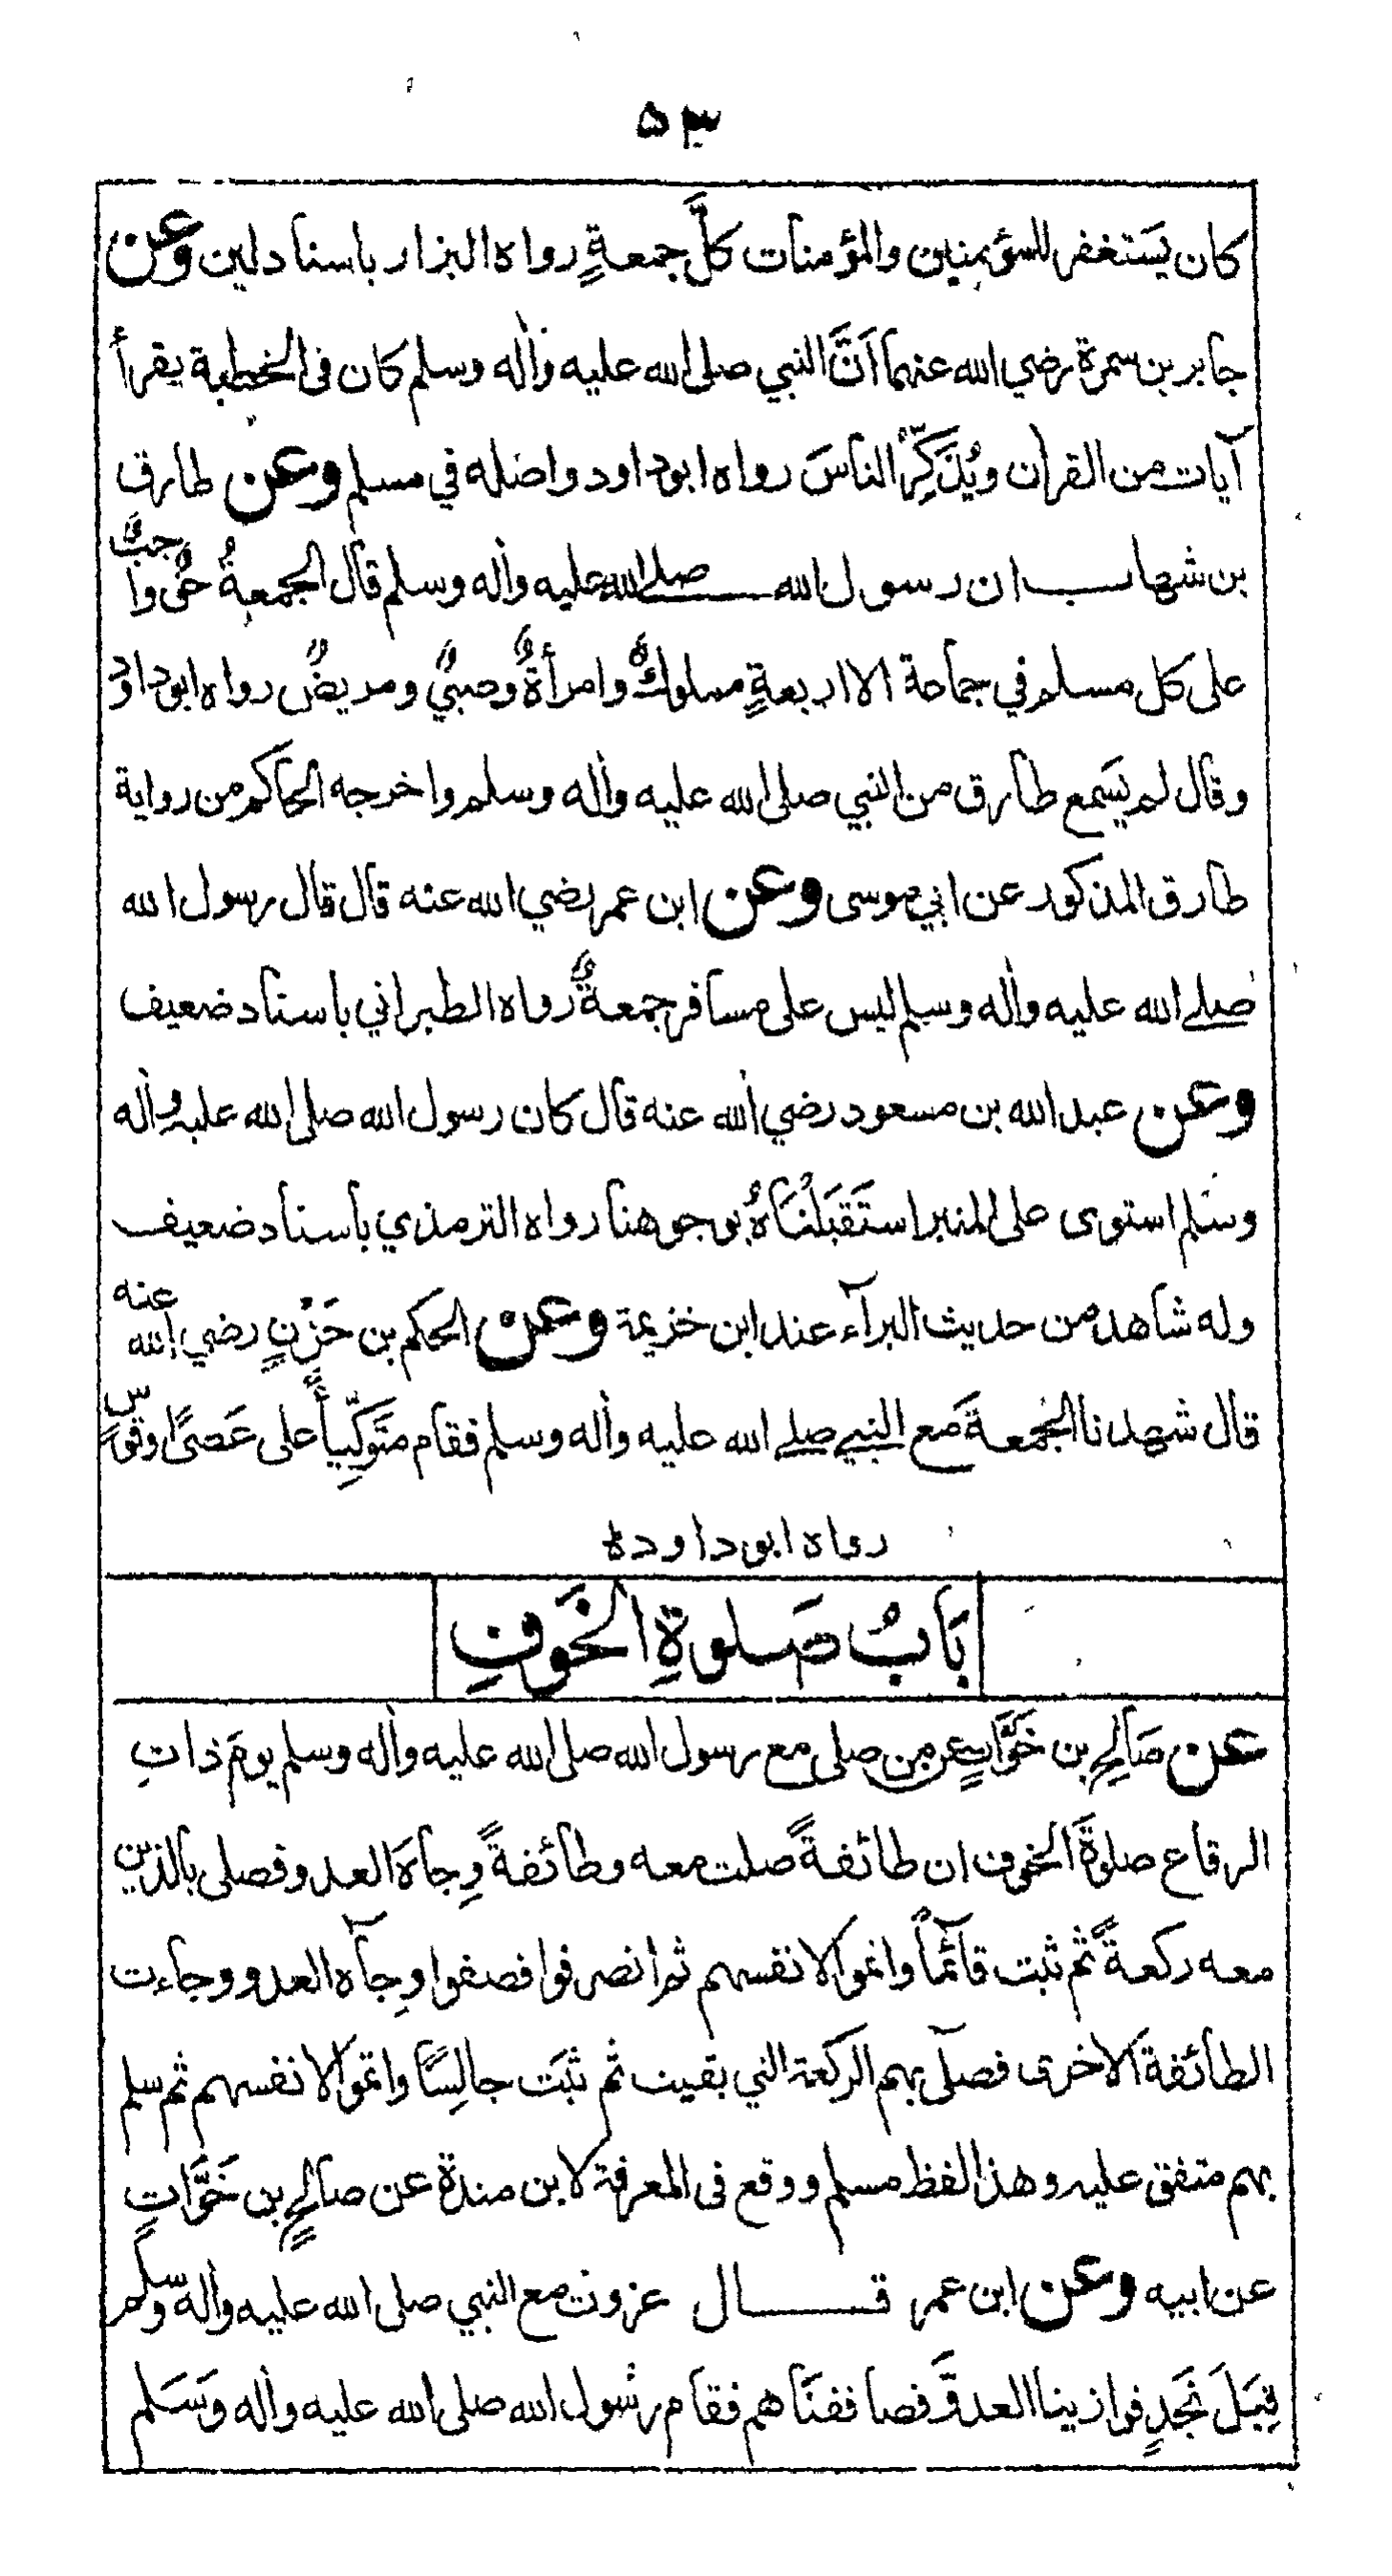 ٥٣
كان يَستغفر للمؤمنين والمؤمنات كلَّ جمعةٍ رواه البزار باسناد لين وعن
جابر بن سمرة رضي الله عنهما اَنَّ النبي صلى الله عليه واٰله وسلم كان فى الخطبة يقرأ
آيات من القراٰن ويُذَكِّرُ الناسَ رواه ابوداود واصله في مسلم وعن طارق
بن شهاب ان رسول الله صلے الله عليه واٰله وسلم قال الجمعةُ حقٌّ واجبٌ
على كل مسلم في جماعة الا اربعةٍ مملوكٌ وامرأةٌ وصبيٌّ ومريضٌ رواه ابوداود
وقال لم يَسمع طارق من النبي صلى الله عليه واٰله وسلم واخرجه الحاكم من رواية
طارق المذكور عن ابي موسى وعن ابن عمر رضي الله عنه قال قال رسول الله
صلے الله عليه واٰله وسلم ليس على مسافر جمعةٌ رواه الطبراني باسناد ضعيف
وعن عبد الله بن مسعود رضي الله عنه قال كان رسول الله صلى الله عليه واٰله
وسلم استوى على المنبر استَقبَلْنَاهُ بوجوهنا رواه الترمذي باسناد ضعيف
وله شاهد من حديث البرآء عند ابن خزيمة وعن الحكم بن حَزْنٍ رضي الله عنه
قال شهدنا الجُمعةَ مَع النبے صلے الله عليه واٰله وسلم فقام متَوَكِّياً على عَصىً اوقوسٍ
رواه ابوداودہ
بَابُ صَلوةِ الخَوفِ
عن صَالحِ بن خَوَّاتٍ عن من صلى مع رسول الله صلى الله عليه واٰله وسلم يومَ ذاتِ
الرقاع صلوةَ الخوف ان طائفةً صلت معه وطائفةً وِجاهَ العدو فصلى بالذين
معه ركعةً ثم ثبت قآئماً واتموا لانفسهم ثم انصرفوا فصفوا وِجاَه العدو وجاءت
الطائفةُ الاخرى فصلّى بهم الركعة التي بقيت ثم ثبَت جالِسًا واتموا لانفسهم ثم سلم
بهم متفق عليه وهذا لفظ مسلم ووقع فى المعرفة لابن مندة عن صالحِ بن خَوَّاتٍ
عن ابيه وعن ابن عمر قال غزوت مع النبي صلى الله عليه واٰله وسلم
قِبَلَ نَجَدٍ فوازينا العدوَّ فصاففنَاهم فقام رسول الله صلى الله عليه واٰله وَسَلم